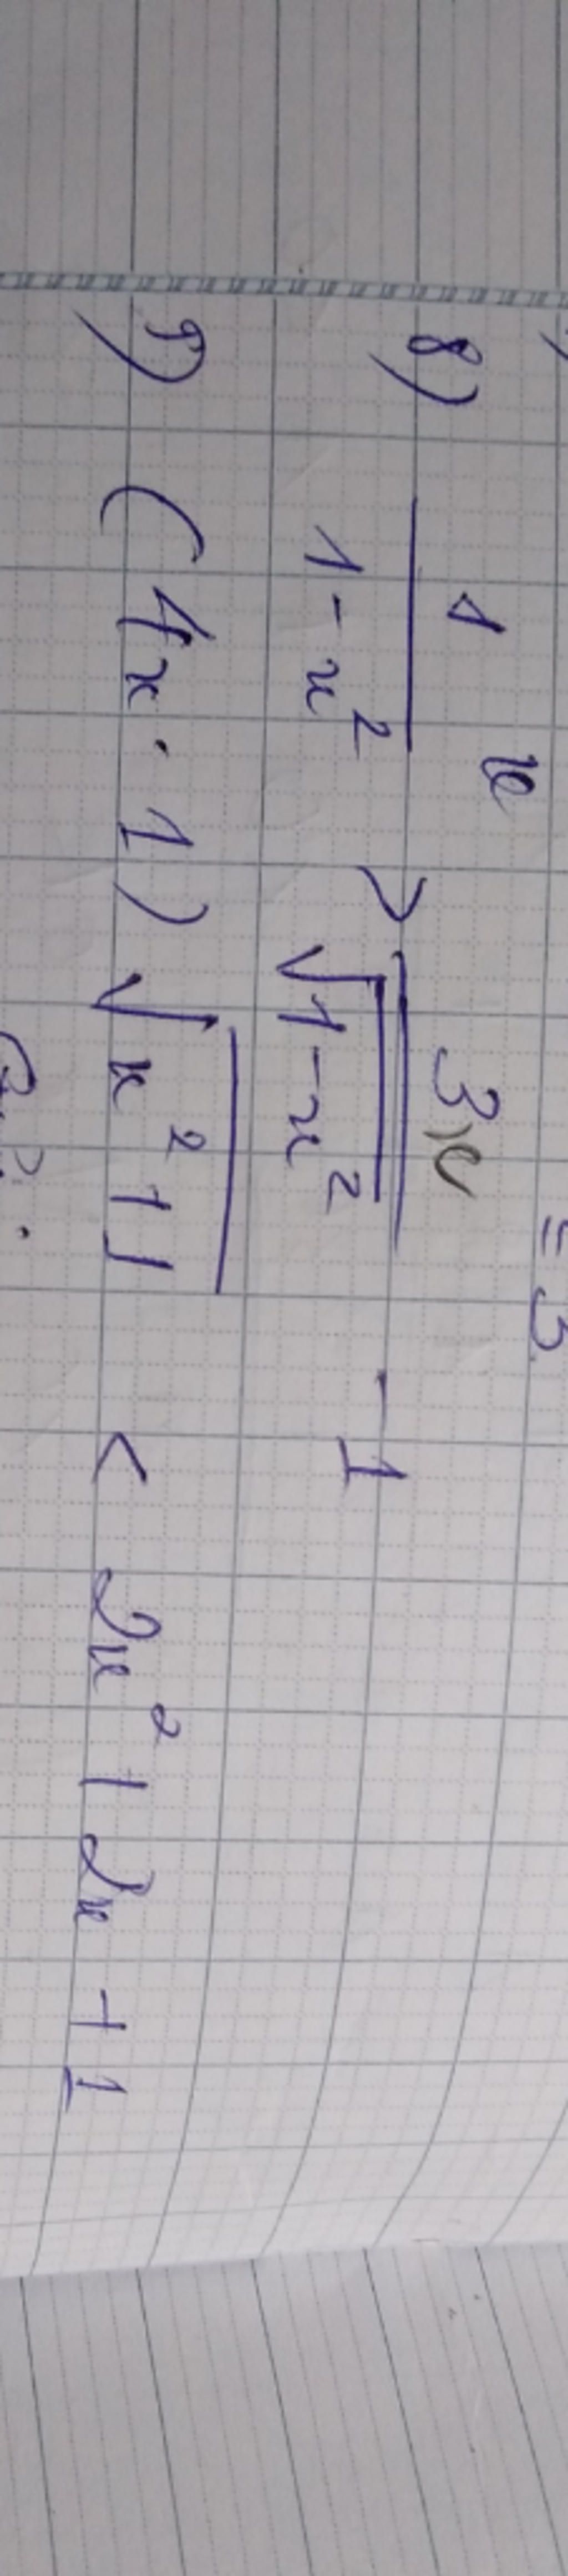 = 3
8) 1/(1-x²) > 3x/√(1-x²) - 1
9) (4x - 1)√(x²+1) < 2x² + 2x + 1